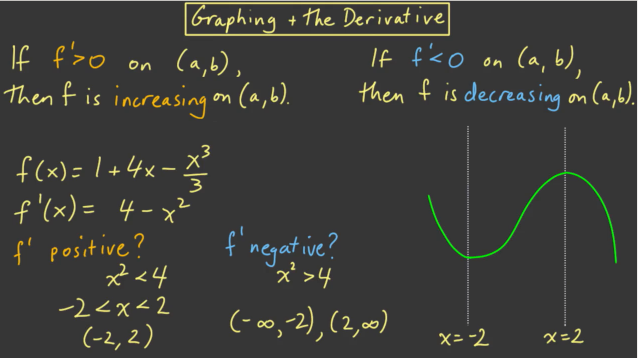 Graphing + the Derivative
If f'>0 on (a,b),
then f is increasing on (a,b).
If f'<0 on (a,b),
then f is decreasing on (a,b).
f(x) = 1 + 4x - x³/3
f'(x) = 4 - x²
f' positive?
x² < 4
-2 < x < 2
(-2, 2)
f' negative?
x² > 4
(-∞, -2), (2, ∞)
x = -2
x = 2